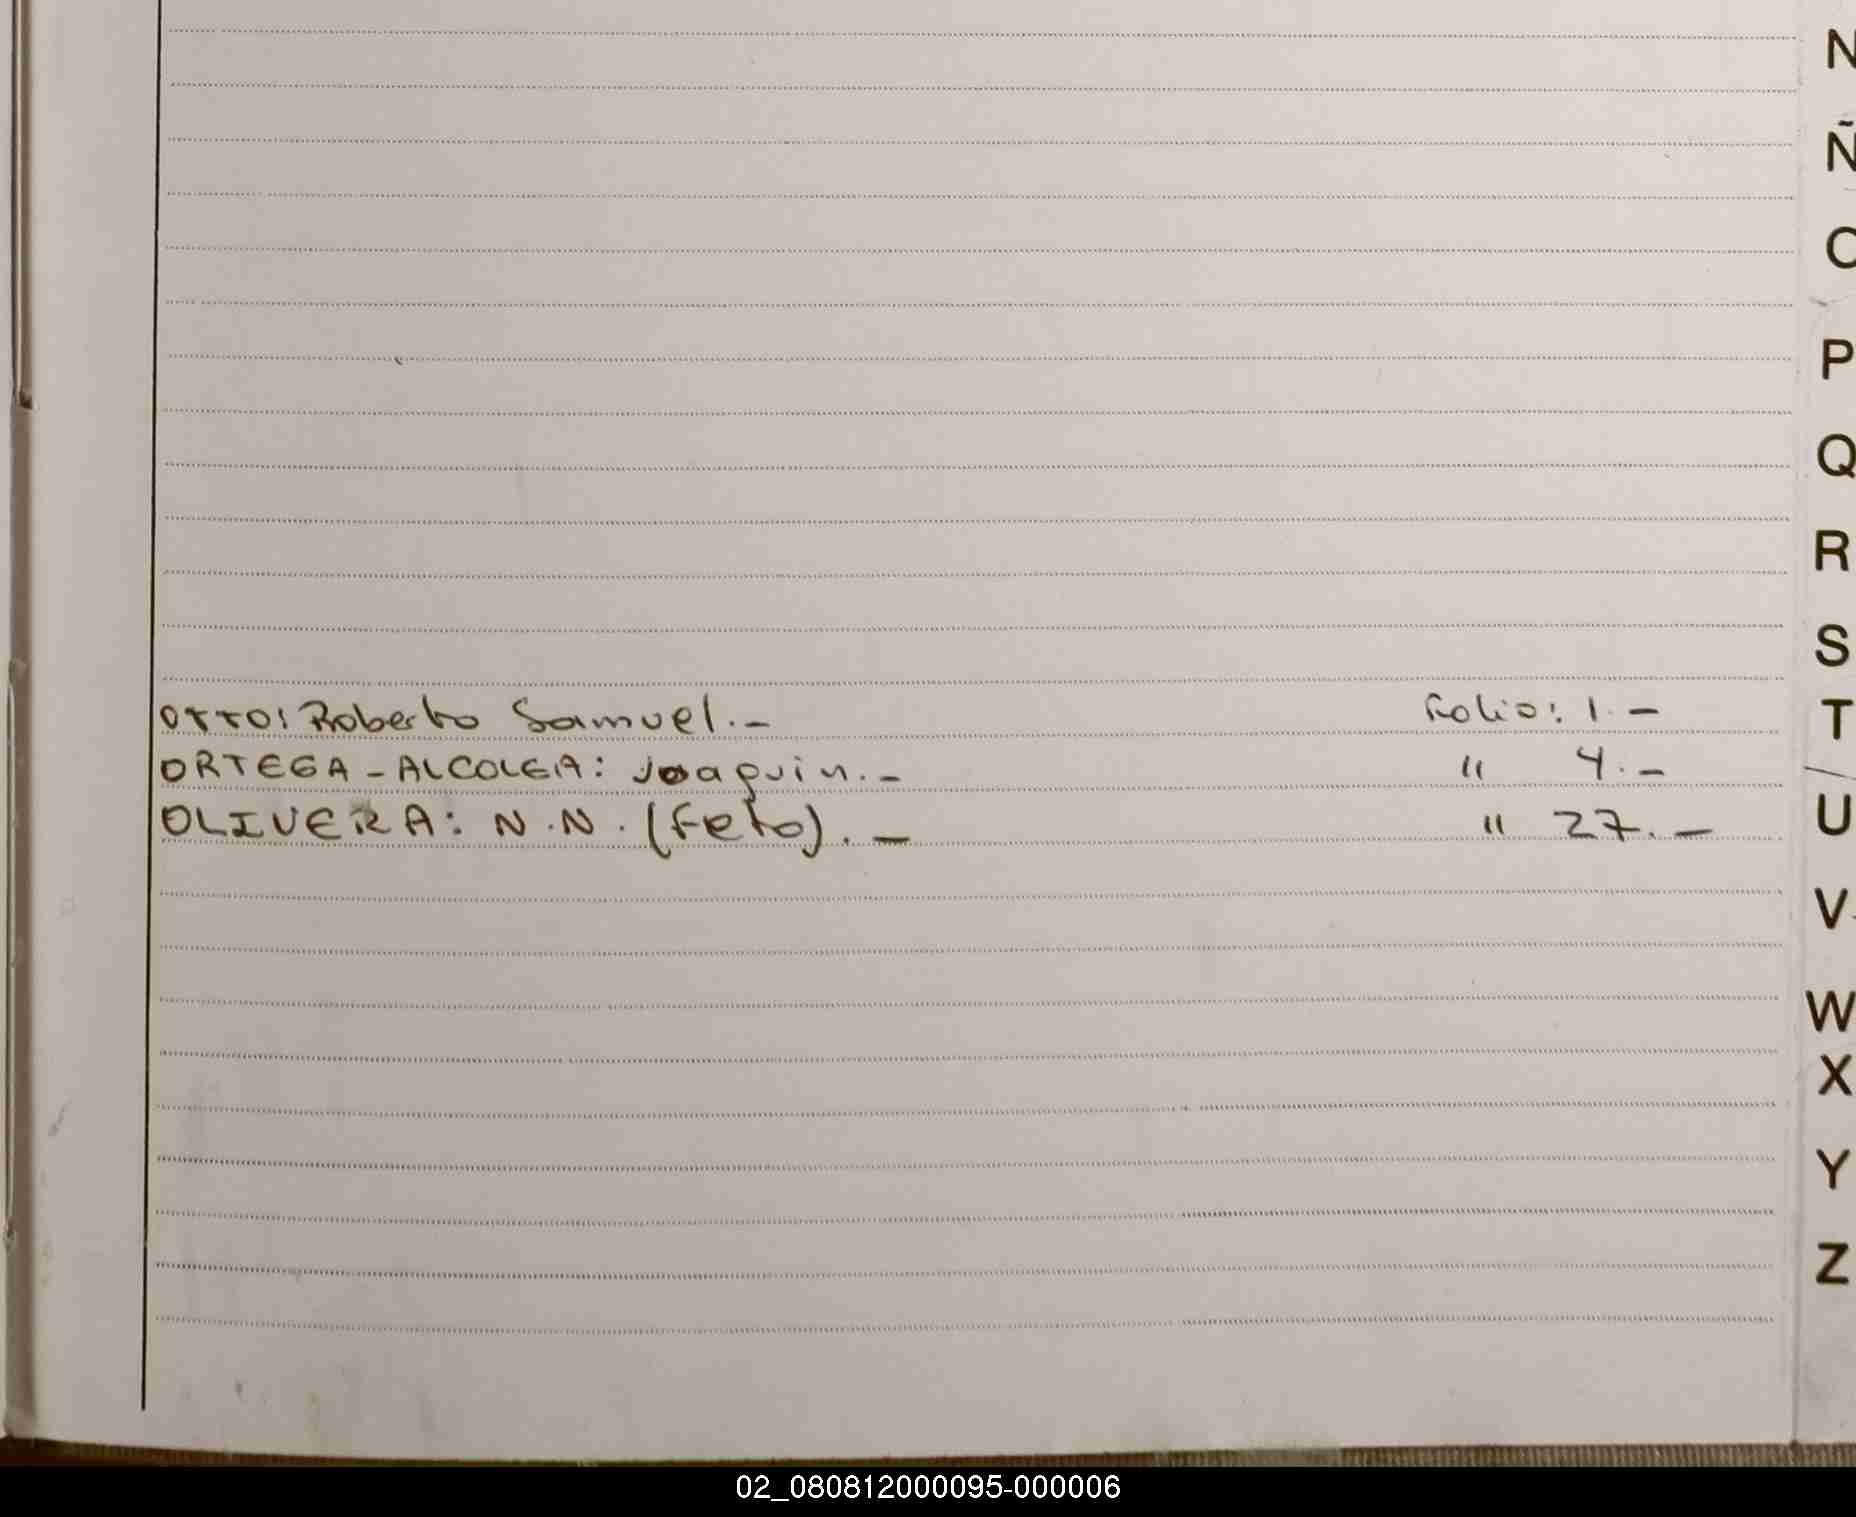 N
Ñ
O
P
Q
R
S
OTTO: Roberto Samuel.- Folio: 1.- T
ORTEGA-ALCOLEA: Joaquin.- " 4.-
OLIVERA: N.N. (Feto).- " 27.- U
V
W
X
Y
Z
02_080812000095-000006